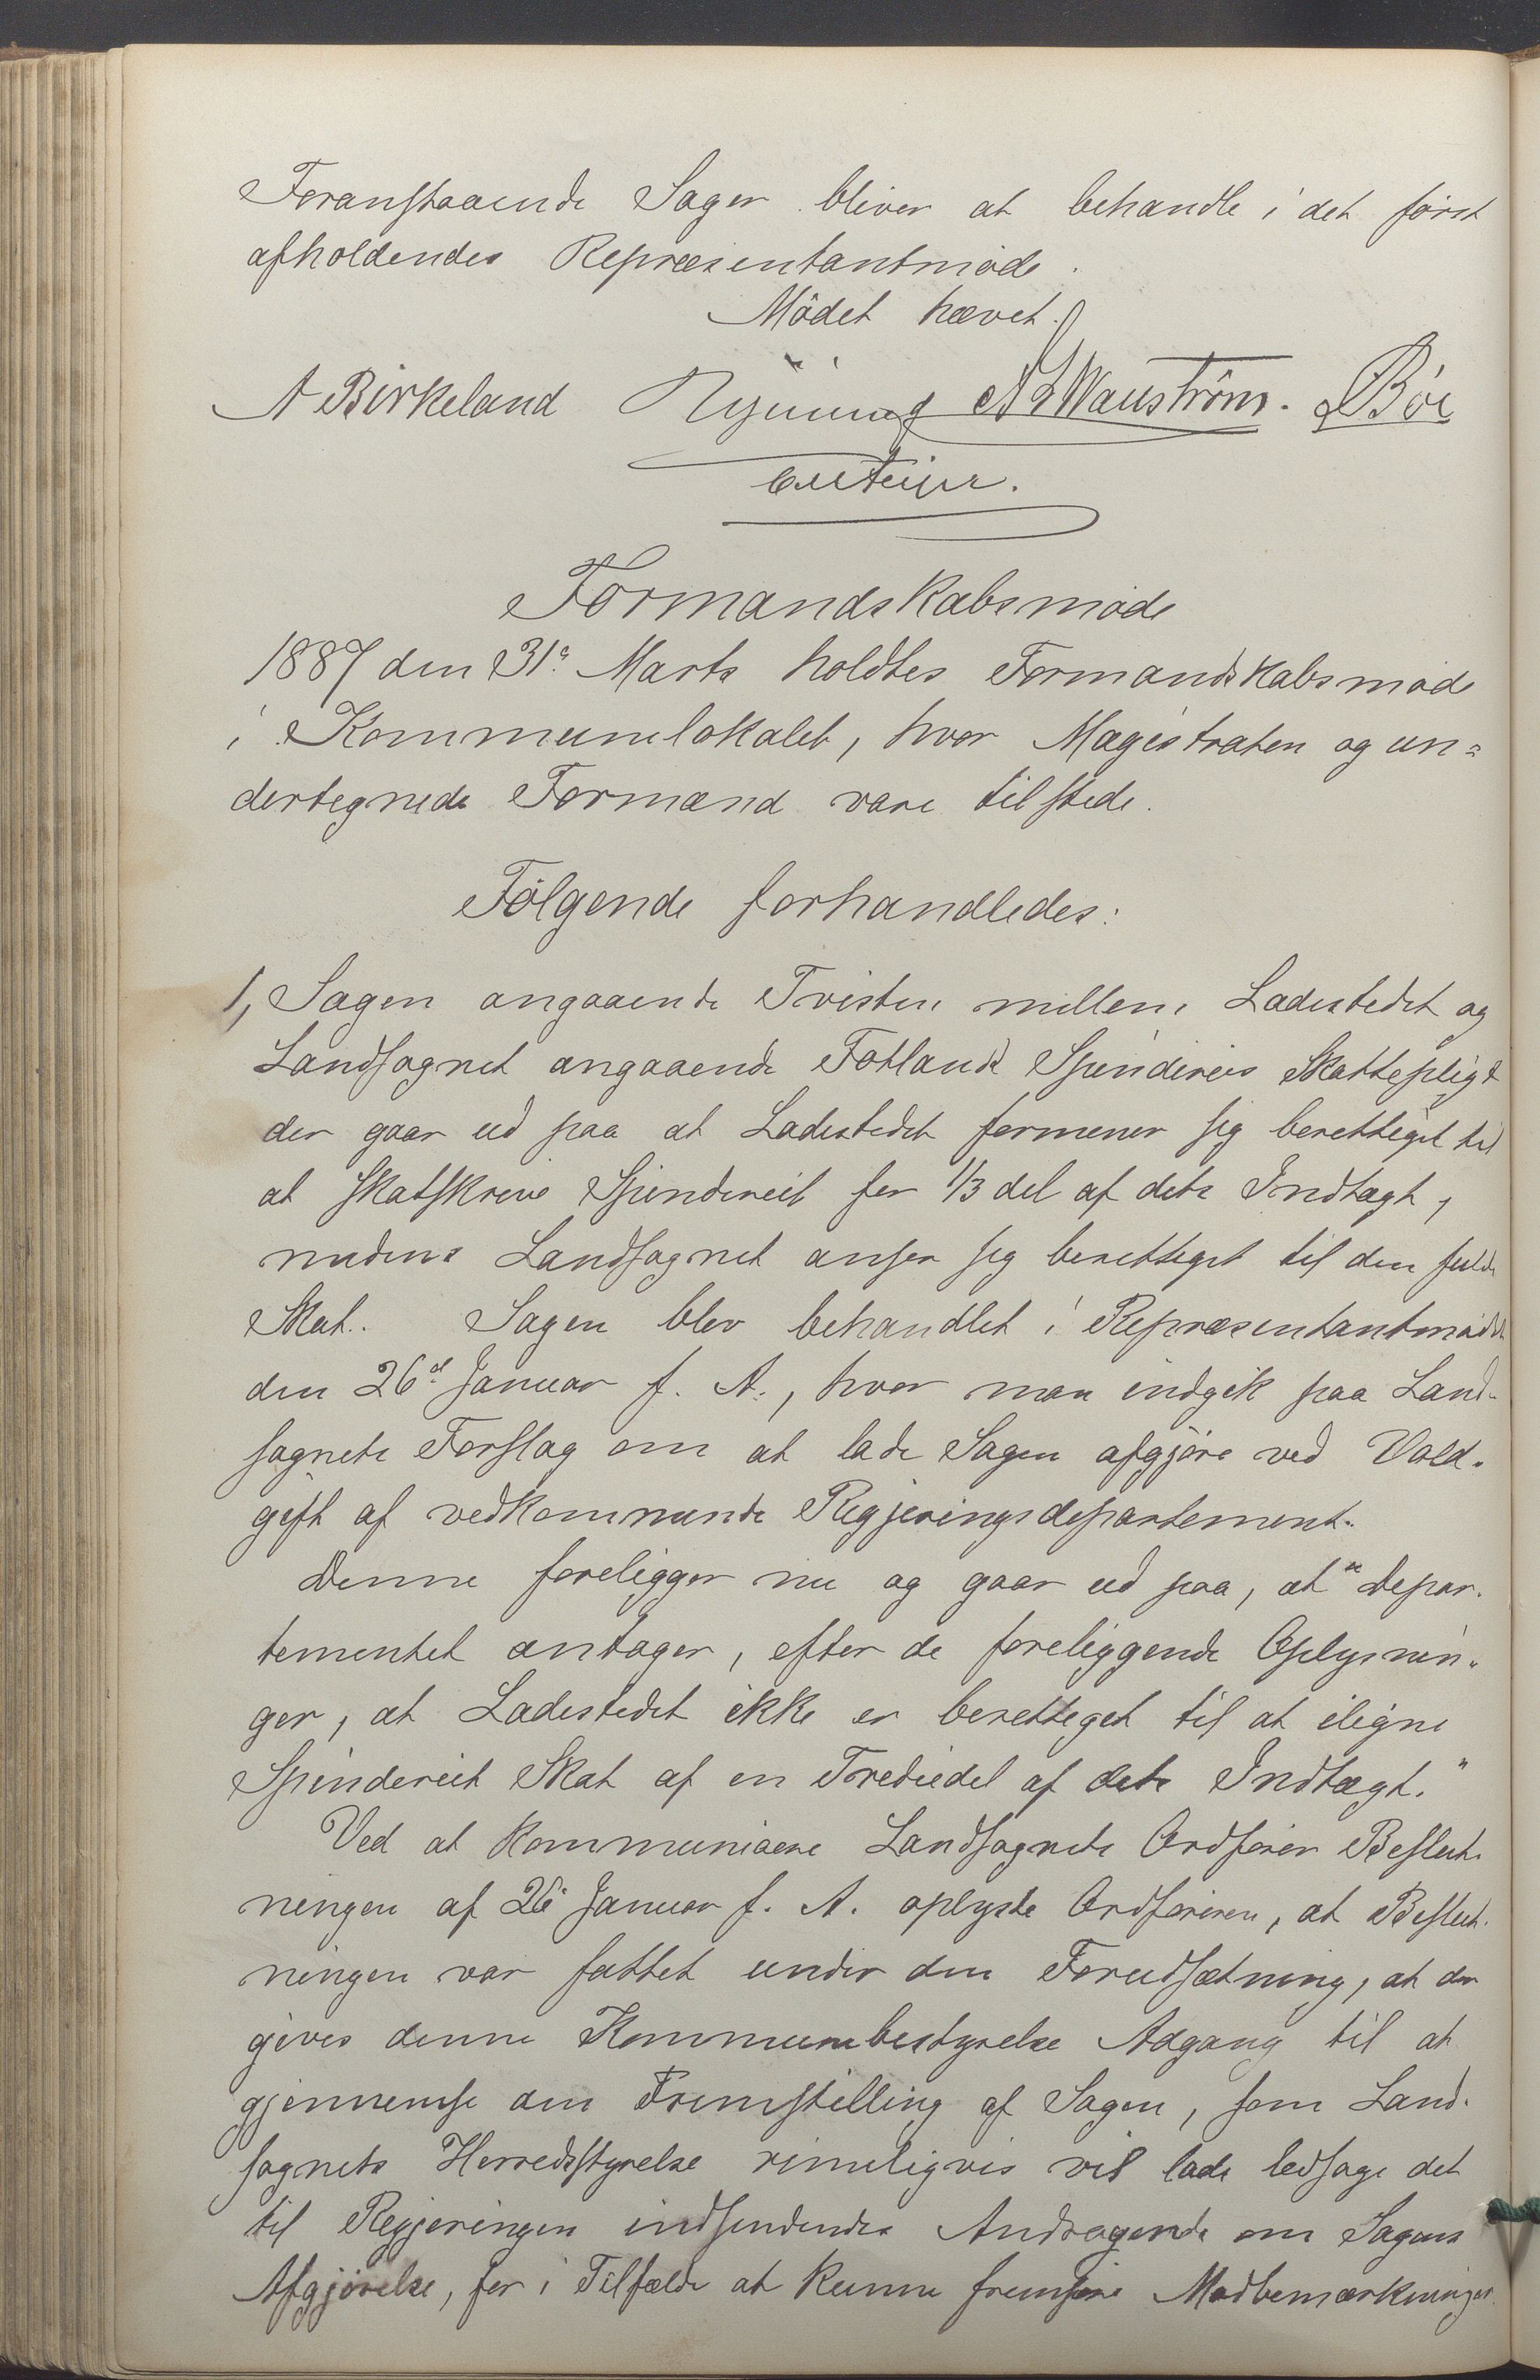 Foranstaaende Sager bliver at behandle i det först
afholdendes Repræsentantmöde.
Mödet hævet.
A Birkeland A L Wauström. Böe
Formandskabsmöde
1887 den 31te Marts holdtes Formandskabsmöde
i Kommunelokalet, hvor Magistraten og un=
dertegnede Formænd vare tilstede.
Fölgende forhandledes:
1, Sagen angaaende Tvisten mellem Ladestedet og
Landsognet angaaende Fotlands Spinderies Skattepligt
der gaar ud paa at Ladestedet formener sig berettiget til
at skatskrive Spinderiet for 1/3 del af dets Indtægt,
medens Landsognet anser sig berettiget til den fulde
Skat. Sagen blev behandlet i Repræsentantmödet
den 26d Januar f. A., hvor man indgik paa Land-
sognets Forslag om at lade Sagen afgjöre ved Vold-
gift af vedkommende Regjeringsdepartement.
Denne foreligger nu og gaar ud paa, at "Depar-
tementet antager, efter de foreliggende Oplysnin-
ger, at Ladestedet ikke er berettiget til at iligne
Spinderiet Skat af en Trediedel af dets Indtægt."
Ved at kommunicere Landsognets Ordförer Beslut-
ningen af 26 Januar f. A. oplyste Ordföreren, at Beslut-
ningen var fattet under den Forudsætning, at der
gives denne Kommunebestyrelse Adgang til at
gjennemse den Fremstilling af Sagen, som Land-
sognets Herredsstyrelse rimeligvis vil lade ledsage det
til Regjeringen indsendendes Andragende om Sagens
Afgjörelse, for i Tilfælde at kunne fremföre Modbemærkninger.